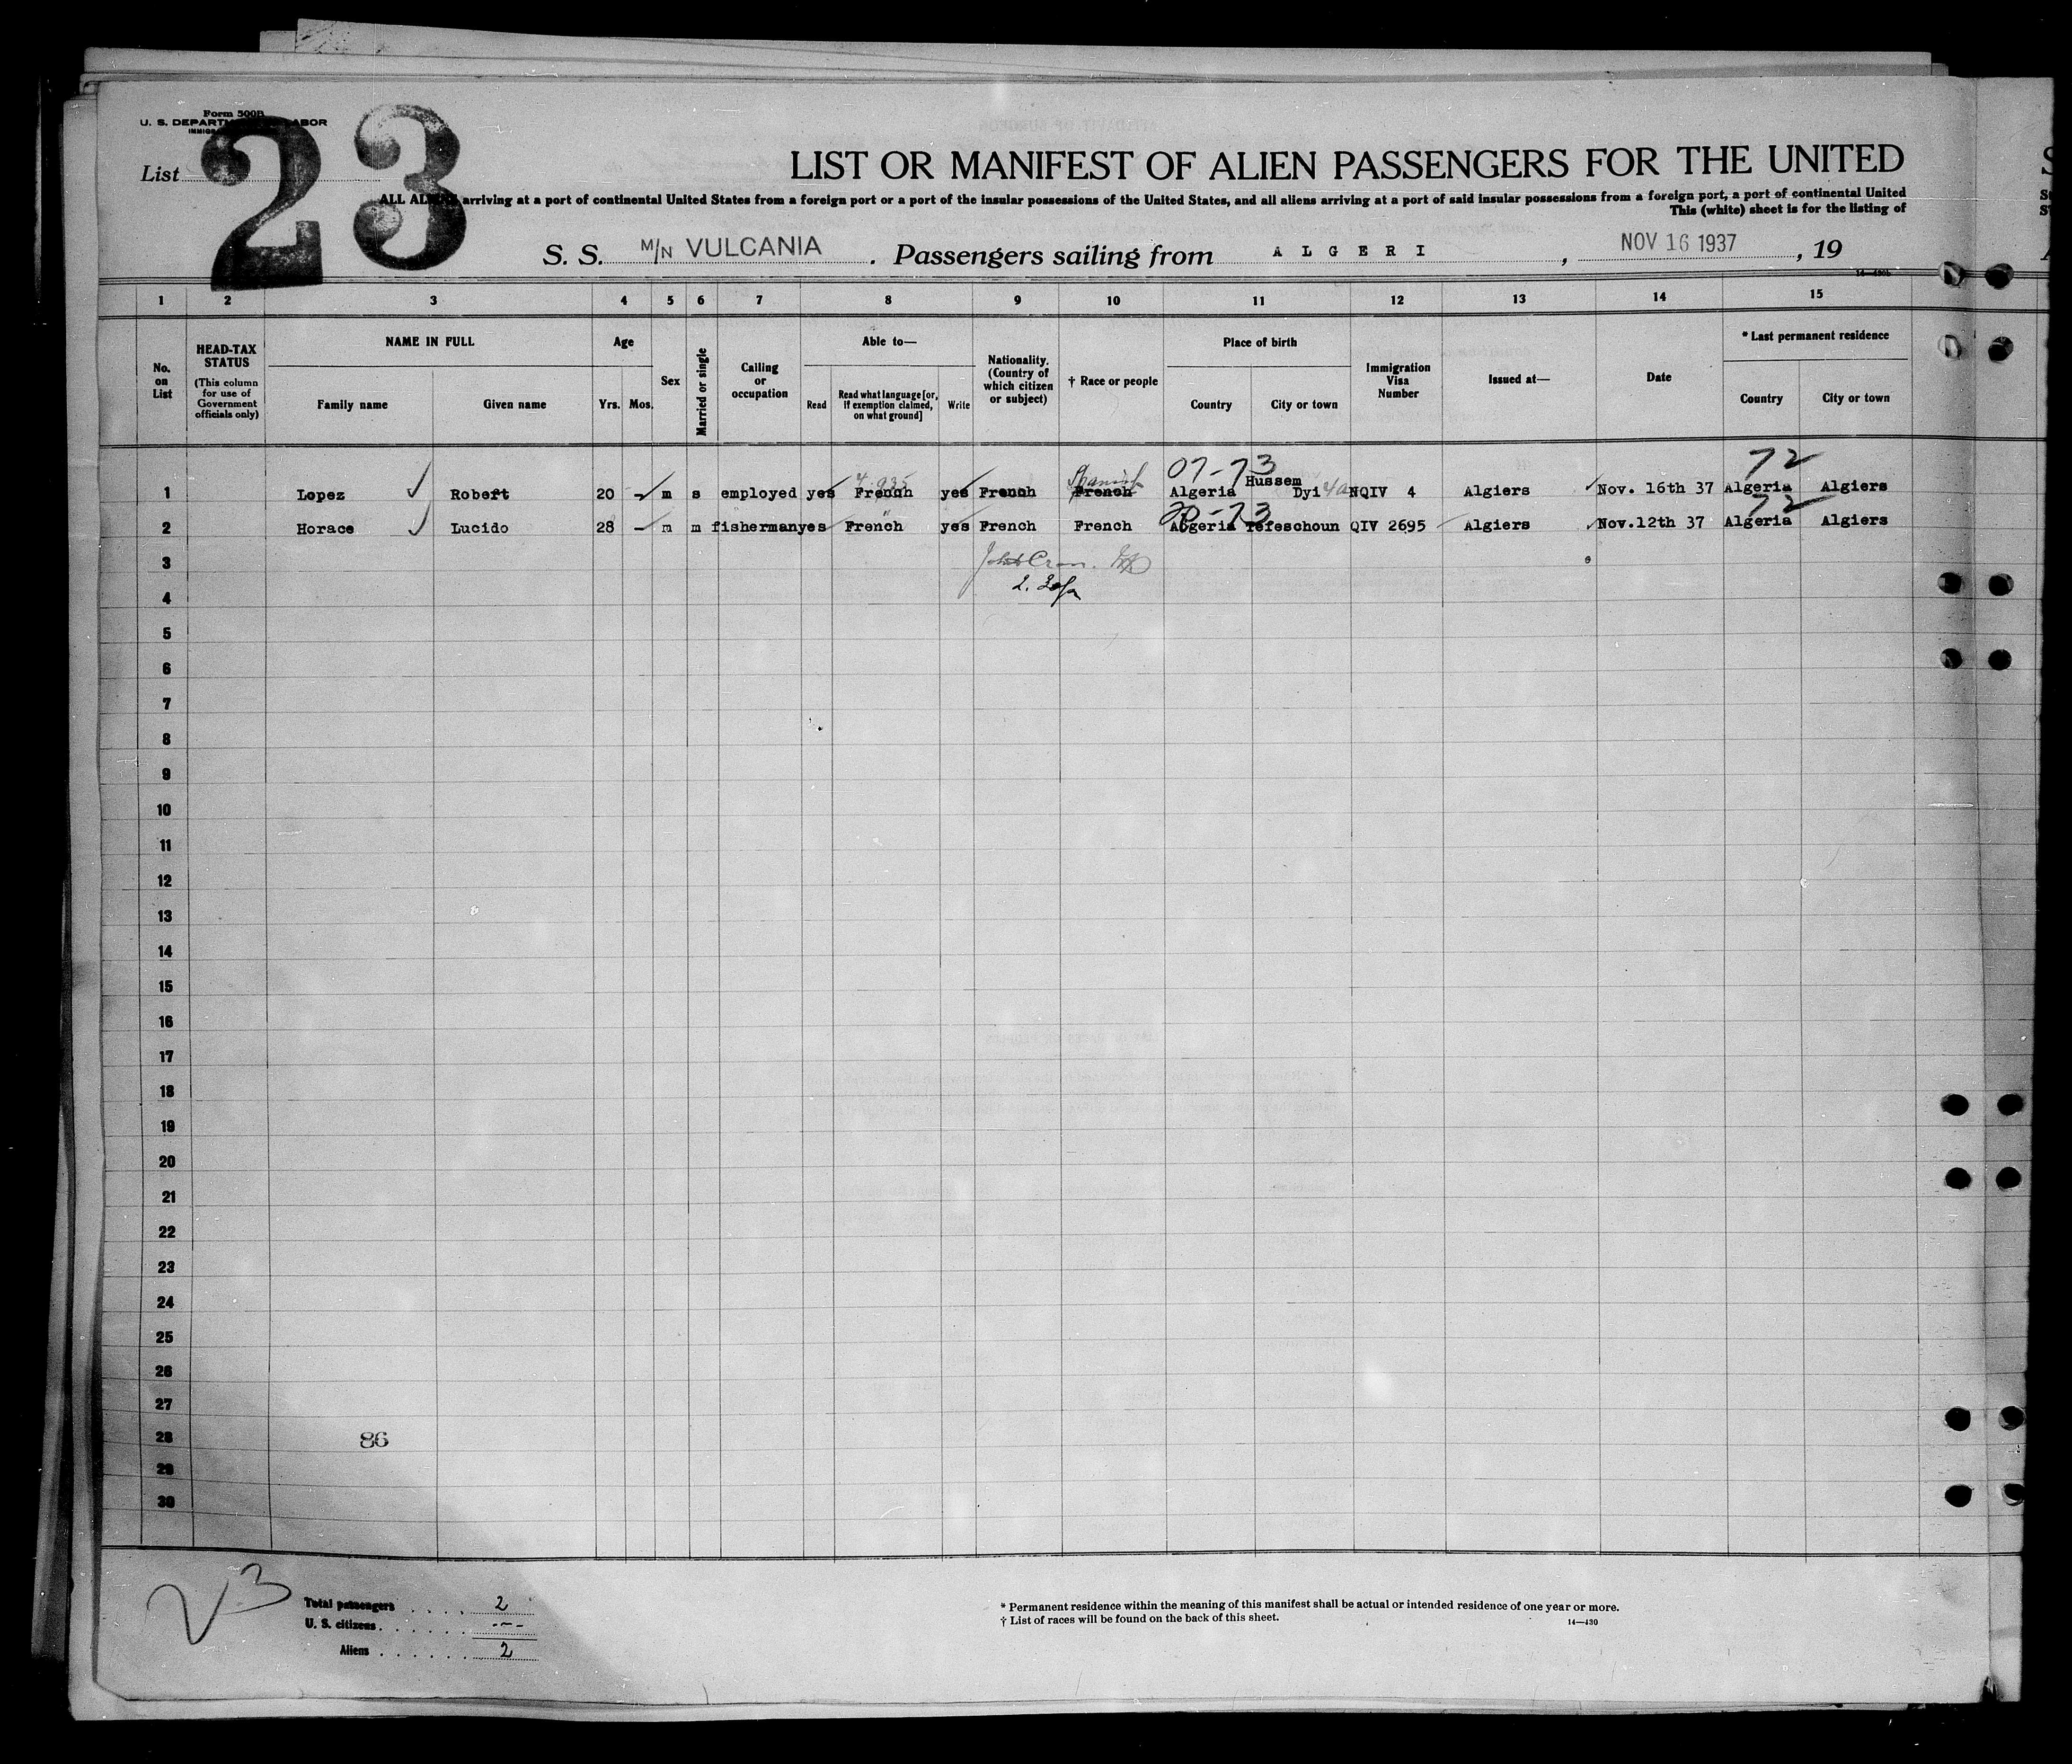 Form 500B
U. S. DEPARTMENT LABOR
List 23
LIST OR MANIFEST OF ALIEN PASSENGERS FOR THE UNITED
ALL ALIENS arriving at a port of continental United States from a foreign port or a port of the insular possessions of the United States, and all aliens arriving at a port of said insular possessions from a foreign port, a port of continental United
This (white) sheet is for the listing of
S. S. M/N VULCANIA . Passengers sailing from ALGERI , NOV 16 1937 , 19
14—430b
1 2 3 4 5 6 7 8 9 10 11 12 13 14 15
No. on List
HEAD-TAX STATUS (This column for use of Government officials only)
NAME IN FULL
Family name Given name
Age
Yrs. Mos.
Sex
Married or single
Calling or occupation
Able to—
Read Read what language [or, if exemption claimed, on what ground] Write
Nationality. (Country of which citizen or subject)
† Race or people
Place of birth
Country City or town
Immigration Visa Number
Issued at—
Date
* Last permanent residence
Country City or town
07-73 72
4-935 Spanish Hussem
1 Lopez Robert 20 m s employed yes French yes French French Algeria Dyi NQIV 4 Algiers Nov. 16th 37 Algeria Algiers
20-73 72
2 Horace Lucido 28 — m m fisherman yes French " yes French French Algeria Tefeschoun QIV 2695 Algiers Nov.12th 37 Algeria Algiers
3
4
5
6
7
8
9
10
11
12
13
14
15
16
17
18
19
20
21
22
23
24
25
26
27
28 86
29
30
23
Total passengers . . . . 2
U. S. citizens . . . . . . ---
Aliens . . . . . . 2
* Permanent residence within the meaning of this manifest shall be actual or intended residence of one year or more.
† List of races will be found on the back of this sheet.
14—430